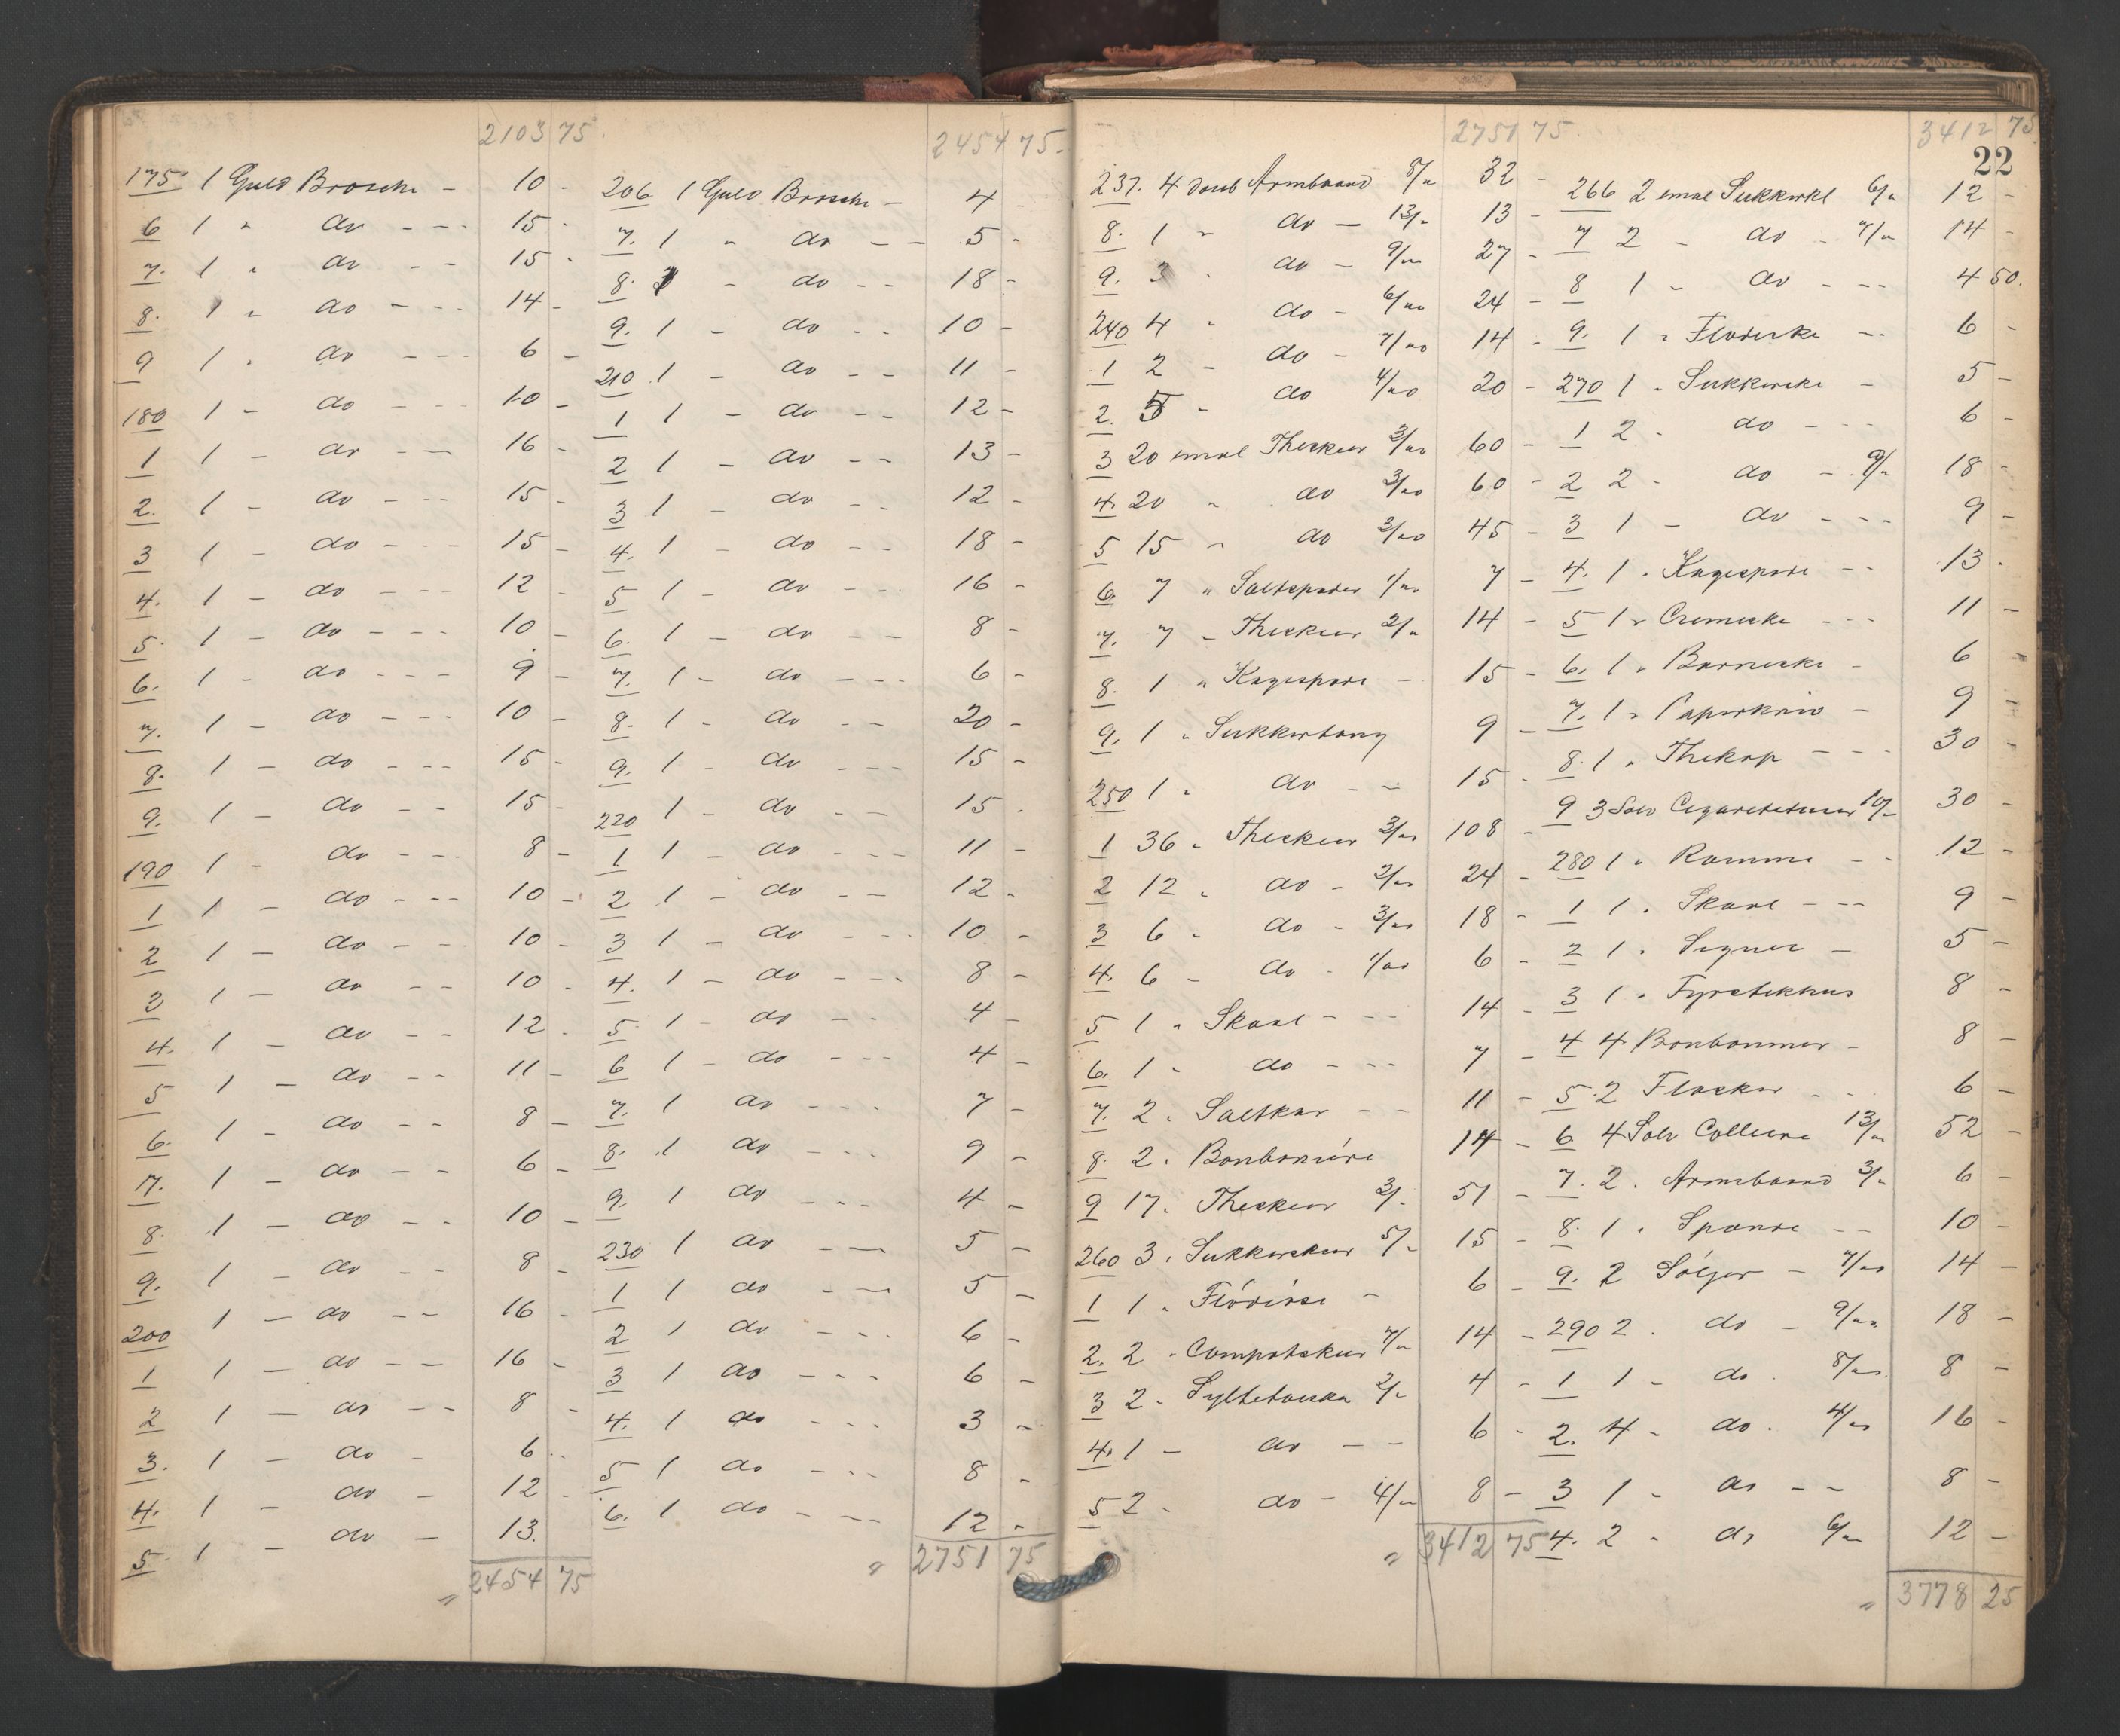 2103 75
175 1 Guld Brosche - 10 -
6 1 " do - - - 15 -
7. 1 " do - - 15 -
8. 1 " do - - - 14 -
9 1 " do - - - 6 -
180 1 - do - - - 10 -
1 1 - do - - - 16 -
2. 1 - do - - - 15 -
3 1 - do - - - 15 -
4. 1 - do - - - 12 -
5. 1 - do - - - 10 -
6. 1 - do - - - 9 -
7. 1 - do - - - 10 -
8. 1 - do - - - 15 -
9. 1 - do - - 15 -
190 1 - do - - - 8 -
1 1 - do - - - 10 -
2 1 - do - - 10 -
3 1 - do - - 10 -
4. 1 - do - - 12 -
5 1 - do - - 11 -
6. 1 - do - - 8 -
7. 1 - do - - 6 -
8. 1 - do - - 10 -
9. 1 - do - - 8 -
200 1 - do - - 16 -
1 1 - do - - 16 -
2 1 - do - - 8 -
3. 1 - do - 6 -
4. 1 - do - 12 -
5. 1 - do - 13.
" 2454 75
2454 75.
206 1 Guld Brosche - 4 -
7. 1 " do - - 5 -
8. 1 - do - - 18 -
9. 1 - do - - 10 -
210 1 - do - - 11 -
1 1 - do - - 12 -
2 1 - do - - 13 -
3 1 - do - - 12 -
4. 1 - do - - 18 -
5 1 - do - - - 16 -
6. 1 - do - - 8 -
7. 1 - do - - - 6 -
8. 1 - do - - 20 -
9. 1 - do - - - 15 -
220 1 - do - - - 15 -
1 1 - do - - - 11 -
2 1 - do - - 12 -
3 1 - do - - - 10 -
4. 1 - do - - - 8 -
5. 1 - do - - - 4 -
6 1 - do - - - 4 -
7. 1 do - - - 7 -
8. 1 do - - - 9 -
9. 1 do - - - 4 -
230 1 do - - 5 -
1 1 do - - 5 -
2 1 do - - - 6 -
3 1 do - - - 6 -
4. 1 do - - - 3 -
5 1 do - - - 8 -
6. 1 do - - - 12 -
" 2751 75
2751 75.
237. 4 doub Armbaand 8/" 32 -
8. 1 " do - 13/" 13 -
9. 3 " do - 9/" 27 -
240 4 " do - 6/" 24 -
1 2 - do - 7/" 14 -
2. 5 " do 4/" 20 -
3 20 emal Theskeer 3/" 60 -
4. 20 " do 3/" 60 -
5 15 " do 3/" 45 -
6. 7 " Saltspader 1/" 7 -
7. 7 " Theskeer 2/" 14 -
8. 1 " Kagespade - 15 -
9. 1 " Sukkertang 9 -
250 1 " do - - 15 -
1 36 " Theskeer 3/" 108 -
2 12 " do - 2/" 24 -
3 6 " do - 3/" 18 -
4. 6 - do - 1/" 6 -
5 1 " Skaal - - - 14 -
6. 1 " do - - - 7 -
7. 2 " Saltkar - - 11 -
8. 2 " Bonboniére 14 -
9 17 " Theskeer 3/- 51 -
260 3 " Sukkerskeer 5/- 15 -
1 1 " Flödeske - 6 -
2. 2 " Compotskeer 7/" 14 -
3 2 " Syltetöiske 2/- 4 -
4. 1 - do - - 6 -
5 2 - do - 4/" 8 -
" 3412 75
3412 75
22
266 2 emal Sukkerkl 6/" 12 -
7 2 - do - 7/" 14 -
8 1 - do - - - 4 50.
9. 1 " Flødeske - - 6 -
270 1 " Sukkerske - 5 -
1 2 " do - - - 6 -
2 2 - do - 9/" 18 -
3 1 - do - - - 9 -
4. 1 " Kagespade - - 13.
5 1 " Cremeske - - - 11 -
6. 1 " Barneske - 6 -
7. 1 " Papirkniv - 9 -
8. 1 " Thekop - - - 30 -
9 3 Sølv Cigaretetuier 10/- 30 -
280 1 " Ramme - - 12 -
1 1 " Skaal - - - 9 -
2 1 " Signet - 5 -
3 1 " Fyrstikhus 8 -
4 4 Bonbonnier - 8 -
5 2 Flasker - - 6 -
6 4 Sølv Colliere 13/" 52 -
7. 2 " Armbaand 3/" 6 -
8. 1 " Spænde - - 10 -
9. 2 Sóljer - 7/" 14 -
290 2 " do - 9/" 18 -
1 1 - do 8/" 8 -
2. 4 - do. 4/" 16 -
3 1 - do - - 8 -
4. 2 - do 6/" 12 -
" 3778 25